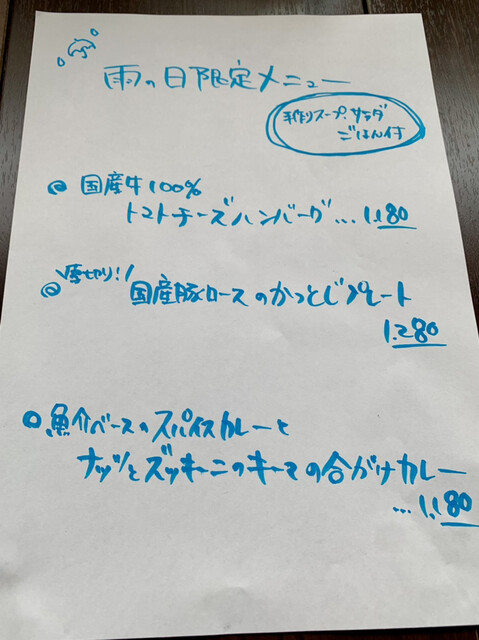 雨の日限定メニュー
手作りスープ、サラダ
ごはん付
国産牛100%
トマトチーズハンバーグ...1.180
厚切り!
国産豚ロースのかつとじプレート
1.280
魚介ベースのスパイスカレーと
ナッツとズッキーニのキーマの合がけカレー
...1.180